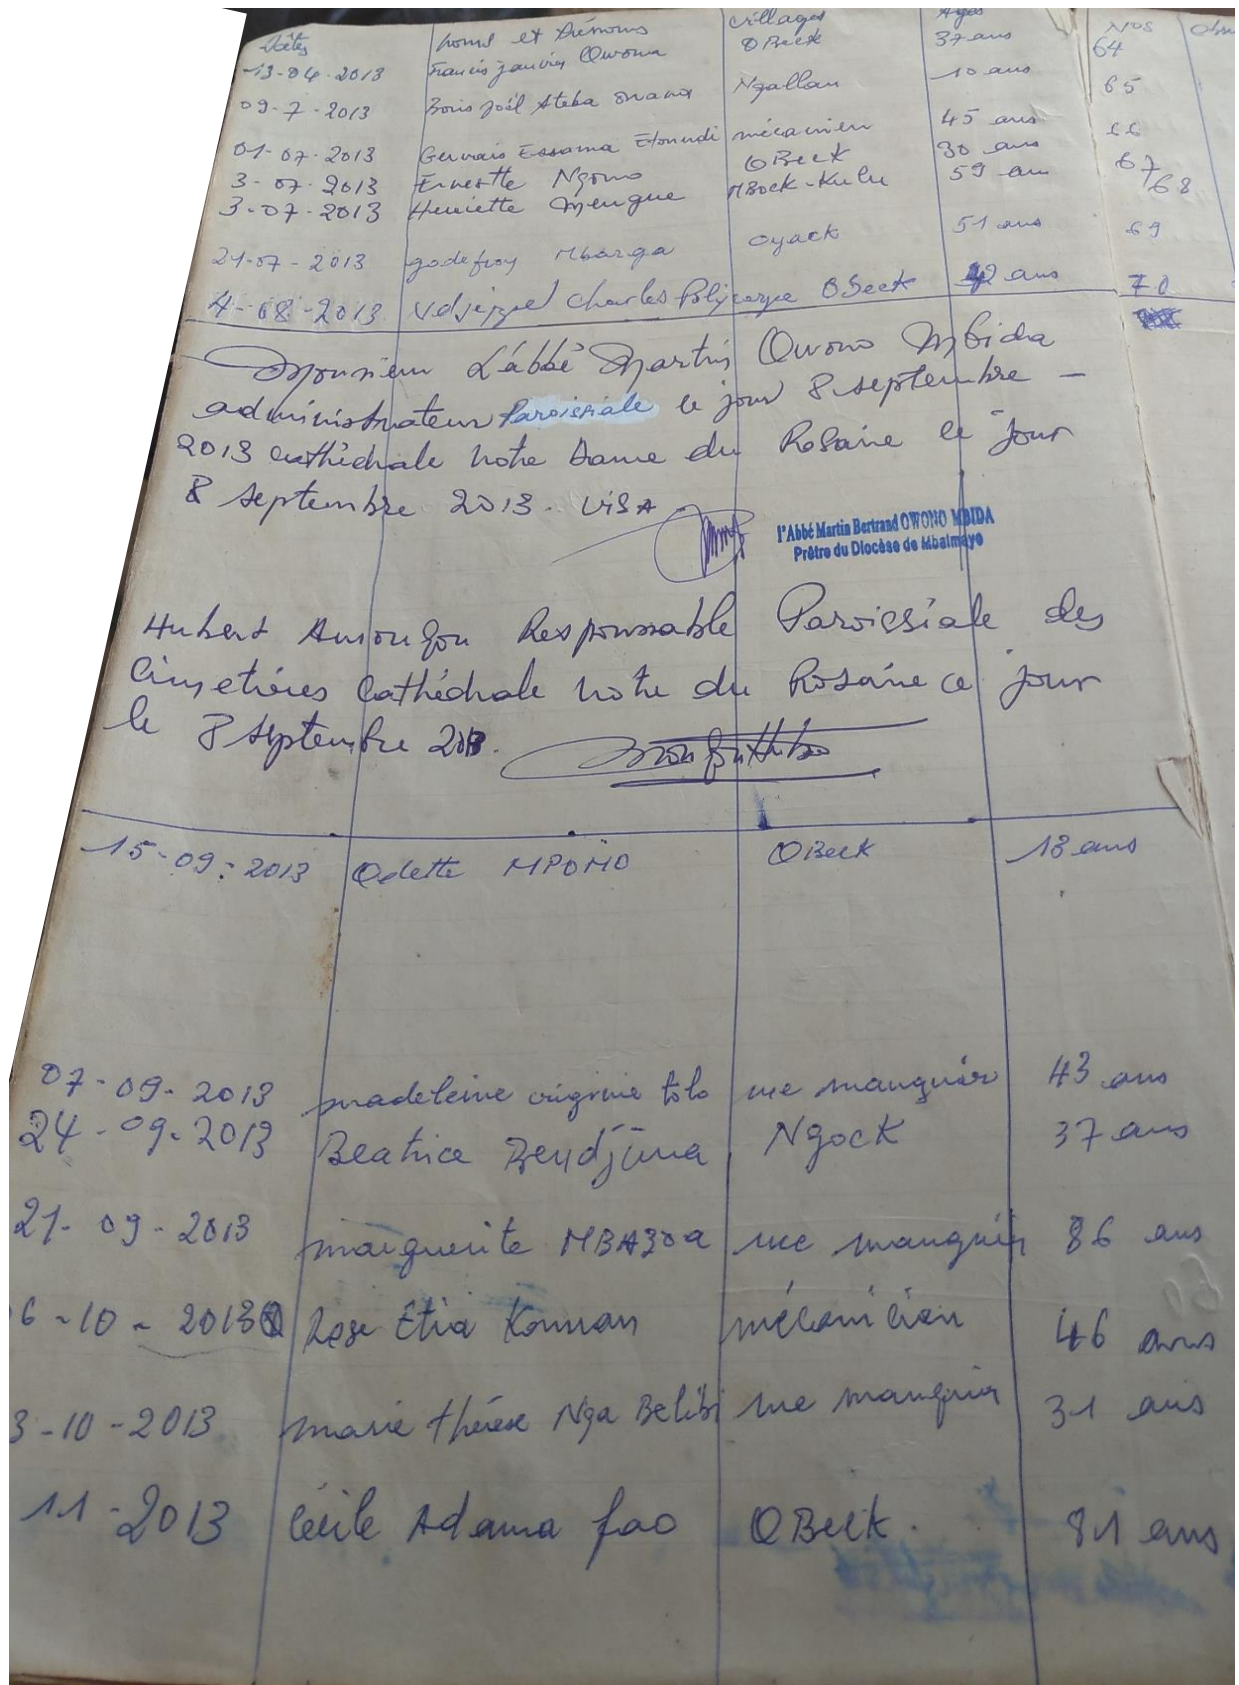 Dates Noms et Prénoms Villages Ages Nos Obs
13-04-2013 Francis Janvier Owona OBeck 37 ans 64
09-7-2013 Boris Joël Ateba Ngallan 10 ans 65
01-07-2013 Gervais Essama Etoundi mécanicien 45 ans 66
3-07-2013 Ernestte Ngono OBeck 30 ans 67
3-07-2013 Henriette Mengue MBock-Kulu 59 ans 68
21-07-2013 godefroy Mbarga oyack 51 ans 69
4-08-2013 Charles Polycarpe OBeck 42 ans 70
Monsieur L'abbé Martin Owono Mbida
administrateur Paroissiale le jour 8 septembre -
2013 cathédrale Notre Dame du Rosaire ce jour
8 septembre 2013. VISA
l'Abbé Martin Bertrand OWONO MBIDA
Prêtre du Diocèse de Mbalmayo
Hubert Responssable Paroissiale des
Cimetières Cathédrale Notre du Rosaire ce jour
le 8 septembre 2013.
15-09-2013 Odette MPOMO OBeck 13 ans
07-09-2013 madeleine virginie tolo rue manguier 43 ans
24-09-2013 Beatrice Bendjima Ngock 37 ans
21-09-2013 marguerite MBAZOA rue manguier 86 ans
6-10-2013 Rose Etia Konnan mécanicien 46 ans
3-10-2013 marie thérèse Nga Belibi rue manguier 31 ans
11-2013 Cécile Adama fao OBeck. 81 ans